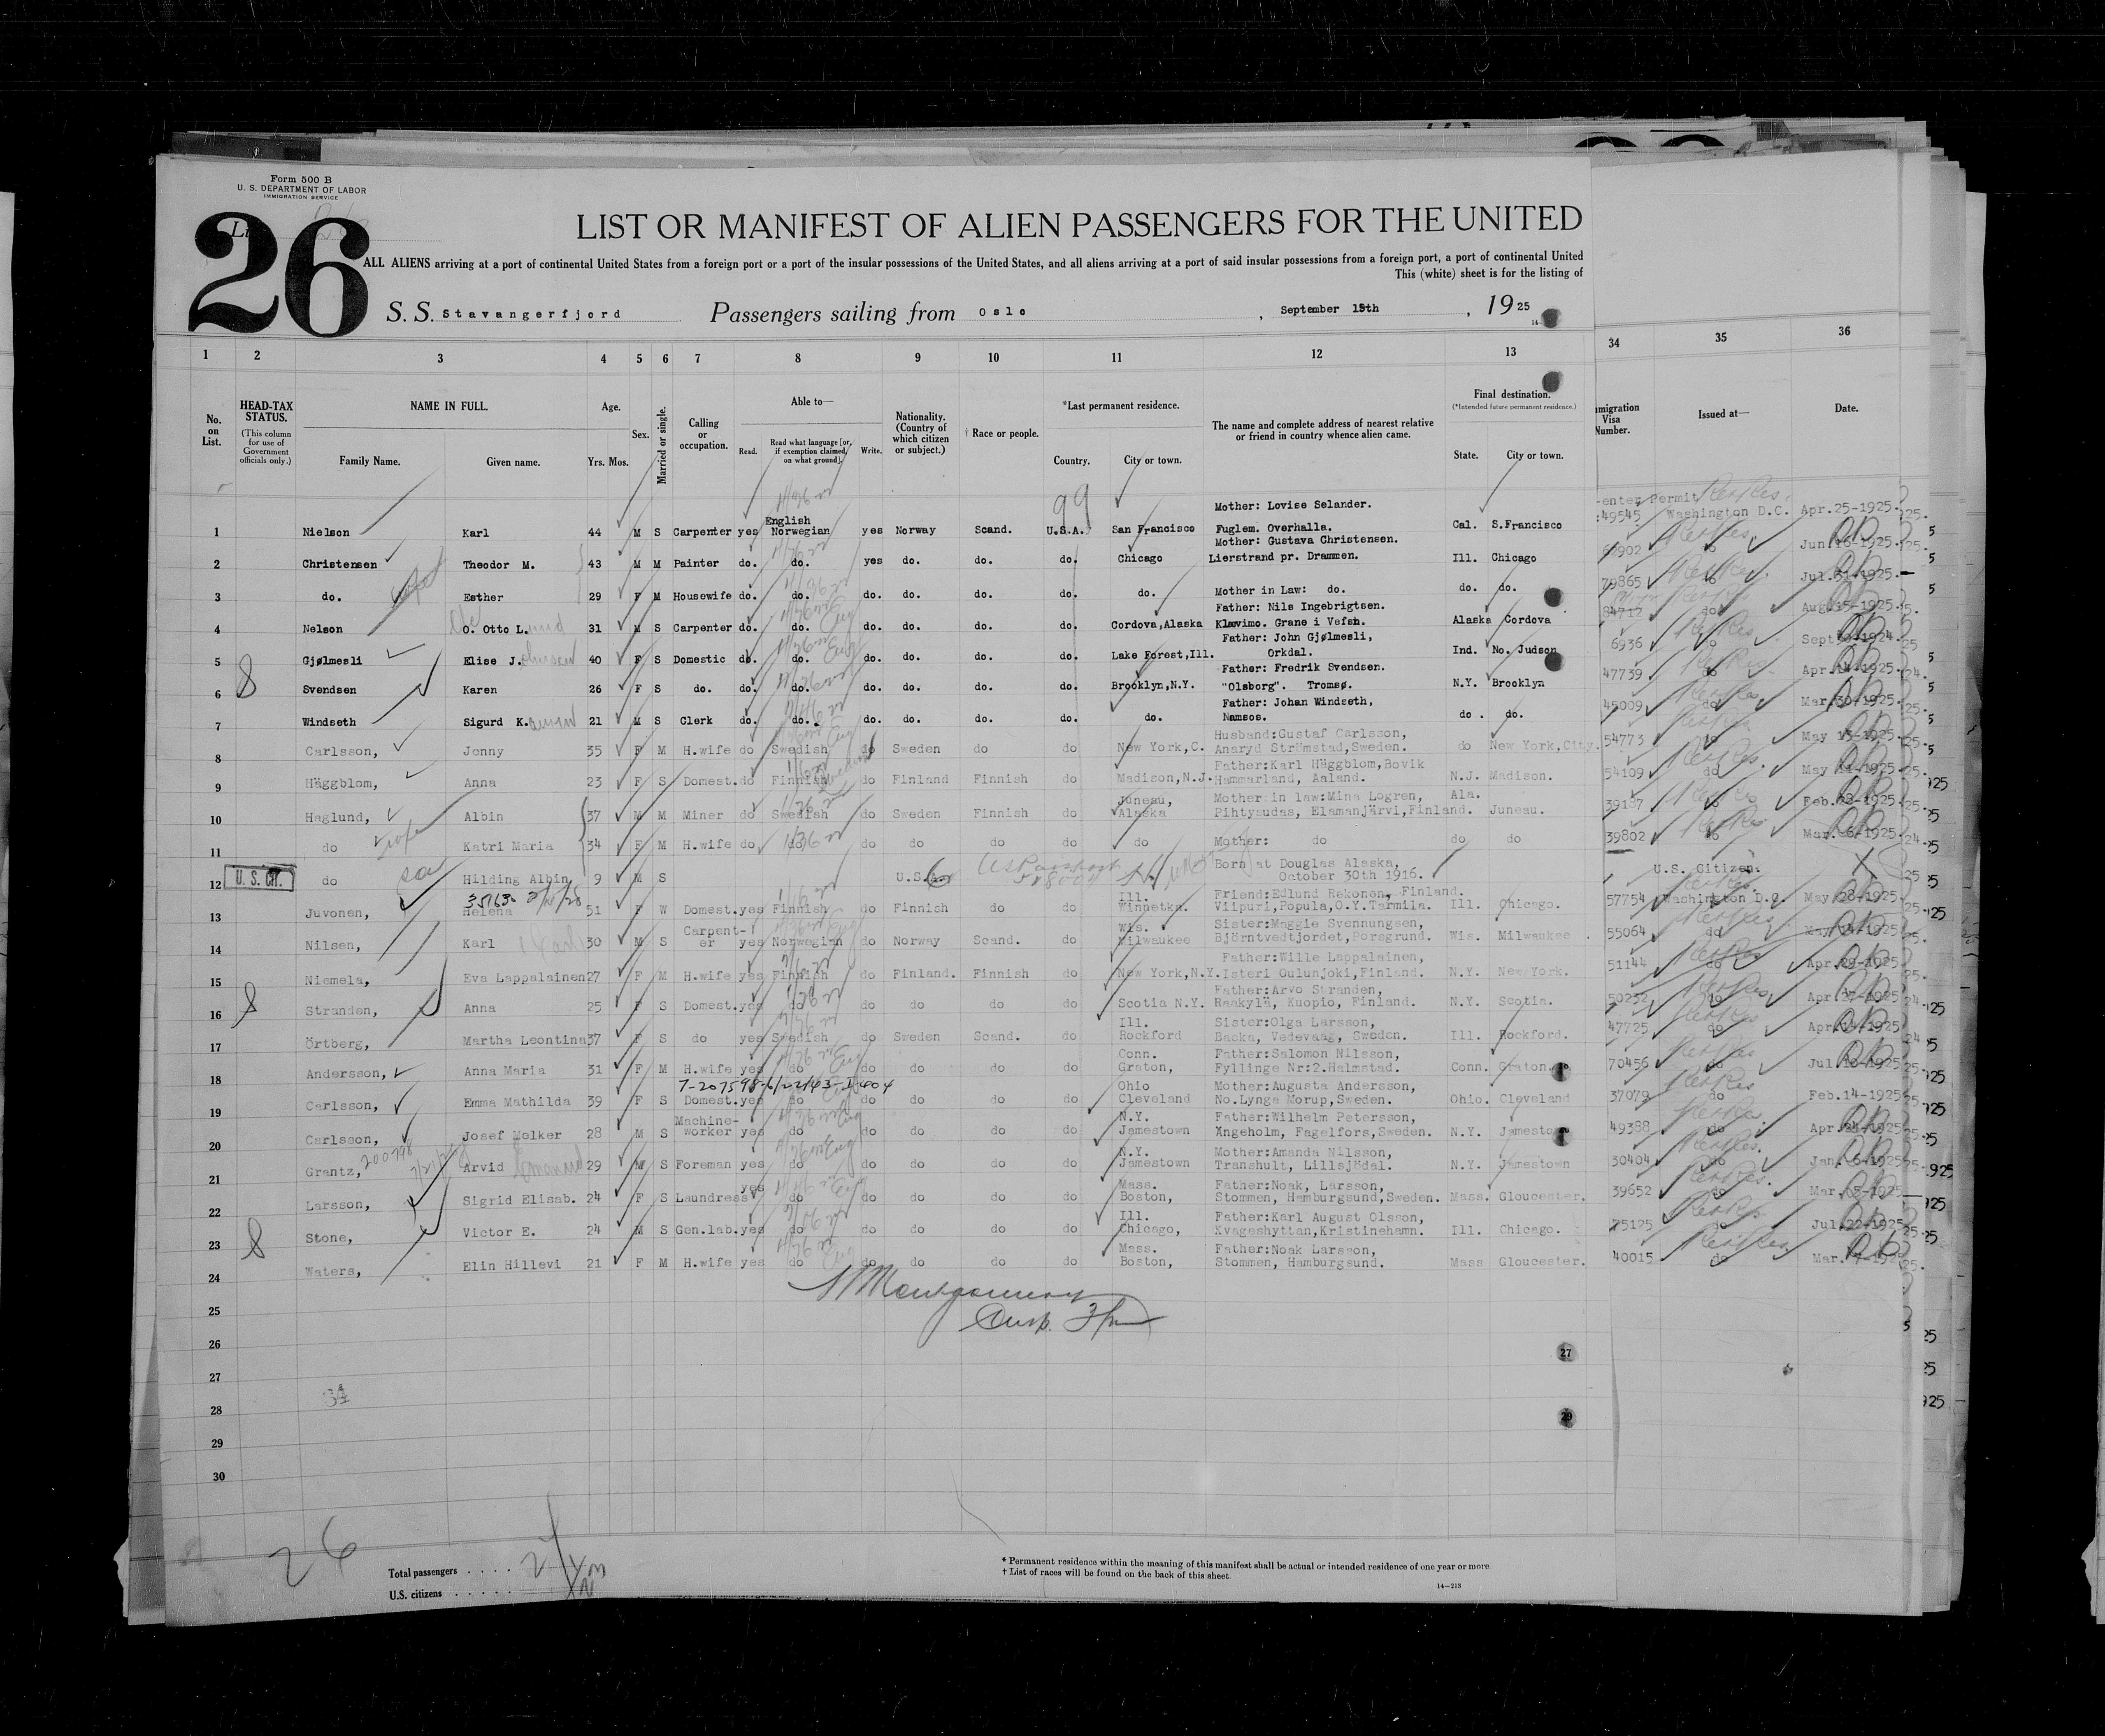 Form 500 B
U. S. DEPARTMENT OF LABOR
IMMIGRATION SERVICE
26
LIST OR MANIFEST OF ALIEN PASSENGERS FOR THE UNITED
ALL ALIENS arriving at a port of continental United States from a foreign port or a port of the insular possessions of the United States, and all aliens arriving at a port of said insular possessions from a foreign port, a port of continental United
This (white) sheet is for the listing of
S. S. Stavangerfjord Passengers sailing from Oslo , September 15th , 19 25
1 2 3 4 5 6 7 8 9 10 11 12 13 34 35 36
No. on List. HEAD-TAX STATUS. (This column for use of Government officials only.) NAME IN FULL. Family Name. Given name. Age. Yrs. Mos. Sex. Married or single. Calling or occupation. Able to— Read. Read what language [or, if exemption claimed, on what ground]. Write. Nationality. (Country of which citizen or subject.) † Race or people. *Last permanent residence. Country. City or town. The name and complete address of nearest relative or friend in country whence alien came. Final destination. (*Intended future permanent residence.) State. City or town. migration Visa Number. Issued at— Date.
99
1 Nielson Karl 44 M S Carpenter yes English Norwegian yes Norway Scand. U.S.A. San Francisco Mother: Lovise Selander. Fuglem. Overhalla. Cal. S.Francisco -enter Permit 49545 Washington D.C. Apr.25-1925.
2 Christensen Theodor M. 43 M M Painter do. do. yes do. do. do. Chicago Mother: Gustava Christensen. Lierstrand pr. Drammen. Ill. Chicago do Jun.16-1925.
3 do. Esther 29 F M Housewife do. do. do. do. do. do. do. Mother in Law: do. do. do. 79865 do Jul.31-1925.
4 Nelson O. Otto L. 31 M S Carpenter do. do. do. do. do. do. Cordova,Alaska Father: Nils Ingebrigtsen. Klævimo. Grane i Vefsn. Alaska Cordova 84712 do Aug.15-1925.
5 Gjølmesli Elise J. 40 F S Domestic do. do. do. do. do. do. Lake Forest,Ill. Father: John Gjølmesli, Orkdal. Ind. No. Judson 6936 do 1924.
6 8 Svendsen Karen 26 F S do. do. do. do. do. do. do. Brooklyn,N.Y. Father: Fredrik Svendsen. "Olsborg". Tromsø. N.Y. Brooklyn 47739 do Apr.14-1925.
7 Windseth Sigurd K. 21 M S Clerk do. do. do. do. do. do. do. Father: Johan Windseth, Namsos. do. do. 45009 do Mar.30-1925.
8 Carlsson, Jenny 35 F M H.wife do Swedish do Sweden do do New York,C. Husband:Gustaf Carlsson, Anaryd Strömstad,Sweden. do New York,City. 54773 do May 13-1925.
9 Häggblom, Anna 23 F S Domest. do Finnish do Finland Finnish do Madison,N.J. Father:Karl Häggblom,Bovik Hammarland, Aaland. N.J. Madison. 54109 do May 11-1925.
10 Haglund, Albin 37 M M Miner do Swedish do Sweden Finnish do Juneau, Alaska Mother in law:Mina Logren, Pihtysudas, Elamanjärvi,Finland. Ala. Juneau. 39187 do 1925.
11 do Katri Maria 34 F M H.wife do do do do do do do Mother: do do do 39802 do 1925.
12 U. S. CIT. do Hilding Albin 9 M S U.S.A. US Passport Born at Douglas Alaska, October 30th 1916. U.S. Citizen.
13 Juvonen, Helena 51 F W Domest. yes Finnish do Finnish do do Ill. Winnetka. Friend:Edlund Rekonen, Finland. Viipuri,Popula,O.Y.Tarmila. Ill. Chicago. 57754 Washington D.C. May 28-1925.
14 Nilsen, Karl 30 M S Carpent-er yes Norwegian do Norway Scand. do Wis. Milwaukee Sister:Maggie Svennungsen, Björntvedtjordet,Porsgrund. Wis. Milwaukee 55064 do May 14-1925
15 Niemela, Eva Lappalainen 27 F M H.wife yes Finnish do Finland. Finnish do New York,N.Y. Father:Wille Lappalainen, Isteri Oulunjoki,Finland. N.Y. New York. 51144 do Apr.29-1925
16 8 Stranden, Anna 25 F S Domest. yes do do do do do Scotia N.Y. Father:Arvo Stranden, Raakylä, Kuopio, Finland. N.Y. Scotia. 50232 do Apr.27-1925
17 Örtberg, Martha Leontina 37 F S do yes Swedish do Sweden Scand. do Ill. Rockford Sister:Olga Larsson, Backa, Vedevaag, Sweden. Ill. Rockford. 47725 do 1925
18 Andersson, Anna Maria 31 F M H.wife yes do do do do do Conn. Graton, Father:Salomon Nilsson, Fyllinge Nr:2.Halmstad. Conn. Graton. 70456 do 1925
19 Carlsson, Emma Mathilda 39 F S Domest. yes do do do do do Ohio Cleveland Mother:Augusta Andersson, No.Lynge Morup,Sweden. Ohio. Cleveland 37079 do Feb.14-1925
20 Carlsson, Josef Melker 28 M S Machine-worker yes do do do do do N.Y. Jamestown Father:Wilhelm Petersson, Ängeholm, Fagelfors,Sweden. N.Y. Jamestown 49388 do Apr.24-1925
21 Grantz, Arvid 29 M S Foreman yes do do do do do N.Y. Jamestown Mother:Amanda Nilsson, Transhult, Lillsjödal. N.Y. Jamestown 30404 do Jan. 6-1925
22 Larsson, Sigrid Elisab. 24 F S Laundress yes do do do do do Mass. Boston, Father:Noak, Larsson, Stommen, Hamburgsund,Sweden. Mass. Gloucester, 39652 do Mar.05-1925
23 8 Stone, Victor E. 24 M S Gen.lab. yes do do do do do Ill. Chicago, Father:Karl August Olsson, Kvageshyttan,Kristinehamn. Ill. Chicago. 75125 do Jul.22-1925
24 Waters, Elin Hillevi 21 F M H.wife yes do do do do do Mass. Boston, Father:Noak Larsson, Stommen, Hamburgsund. Mass Gloucester. 40015 do
25
26
27
28
29
30
27
29
26
Total passengers . . . . .
U.S. citizens . . . . .
* Permanent residence within the meaning of this manifest shall be actual or intended residence of one year or more.
† List of races will be found on the back of this sheet.
14—213